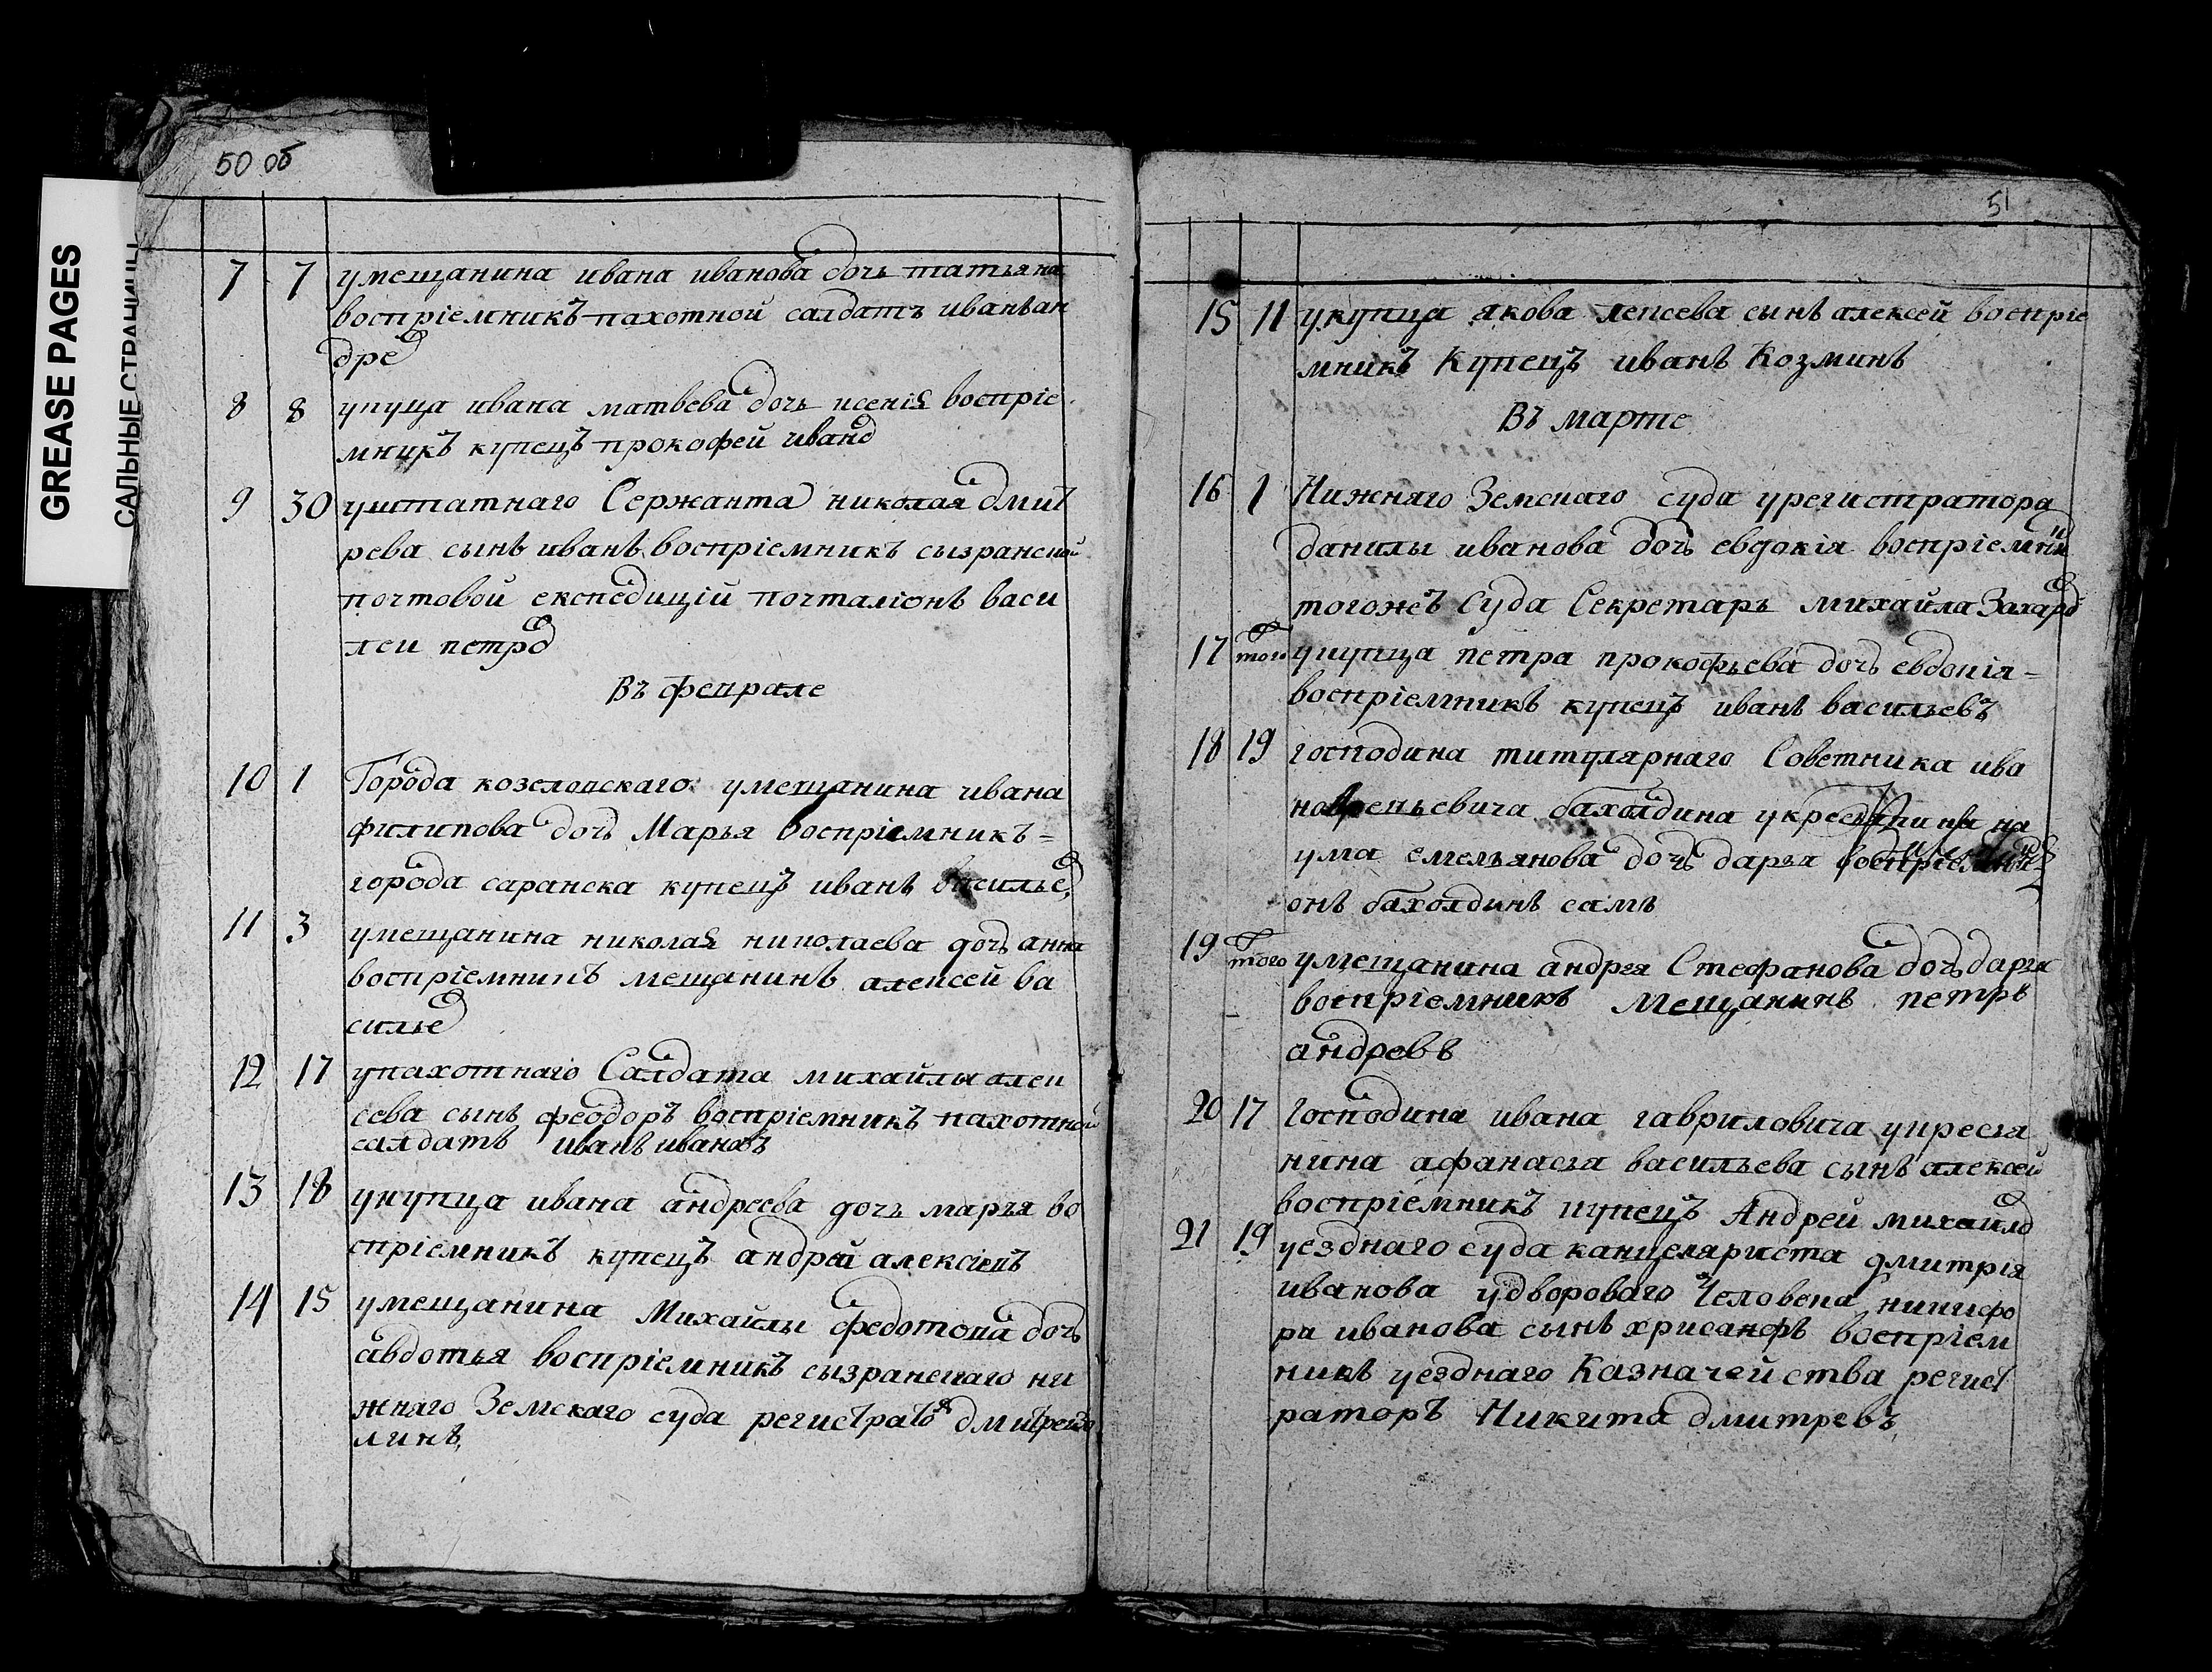 GREASE PAGES
САЛЬНЫЕ СТРАНИЦЫ
50 об
7 7 умещанина ивана иванова дочь татьяна
воспріемникъ пахотной салдатъ иванъ ан
дре
8 8 укупца ивана матвева дочь ксенія воспріе
мникъ купецъ прокофей ивано
9 30 уштатнаго Сержанта николая дмит
рева сынъ иванъ воспріемникъ сызранской
почтовой експедицій почталіонъ васи
леи петро
Въ феврале
10 1 Города козеловскаго умещанина ивана
филипова дочь Марья воспріемникъ =
города саранска купецъ иванъ василье
11 3 умещанина николая николаева дочь анна
воспріемникъ мещанинъ алексей ва
силье
12 17 упахотнаго Салдата михайлы алек
сева сынъ феодоръ воспріемникъ пахотной
салдатъ иванъ ивановъ
13 18 укупца ивана андреева дочь марья во
спріемникъ купецъ андрей алексіевъ
14 15 умещанина Михайлы федотова дочь
авдотья воспріемникъ сызранскаго ни
жнаго Земскаго суда регистратор
линъ
51
15 11 укупца якова алексева сынъ алексей воспріе
мникъ Купецъ иванъ Козминъ
Въ марте
16 1 Нижняго Земскаго суда урегистратора
данилы иванова дочь евдокія воспріемник
тогожъ Суда Секретарь михайла Захаро
17 того укупца петра прокофьева дочь евдокія =
воспріемникъ купецъ иванъ васильевъ
18 19 господина титулярнаго Советника ива
бахолдина укрестьянина на
ума емельянова дочь дарья воспріемник
онъ бахолдинъ самъ
19 того умещанина андрея Стефанова дочь дарья
воспріемникъ мещанинъ петръ
андревъ
20 17 Господина ивана гавриловича укрестья
нина афанасья васильева сынъ алексей
воспріемникъ купецъ Андрей михайло
21 19 уезднаго суда канцеляриста дмитрія
иванова удвороваго Человека никифо
ра иванова сынъ хрисанфъ воспріем
никъ уезднаго Казначейства регист
раторъ Никита дмитревъ